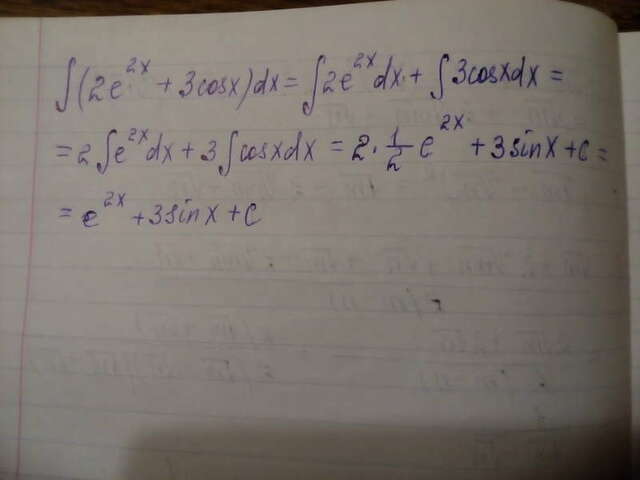 ∫(2e^{2x} + 3cosx)dx = ∫2e^{2x}dx + ∫3cosxdx =
= 2∫e^{2x}dx + 3∫cosxdx = 2·\frac{1}{2}e^{2x} + 3sinx + C =
= e^{2x} + 3sinx + C